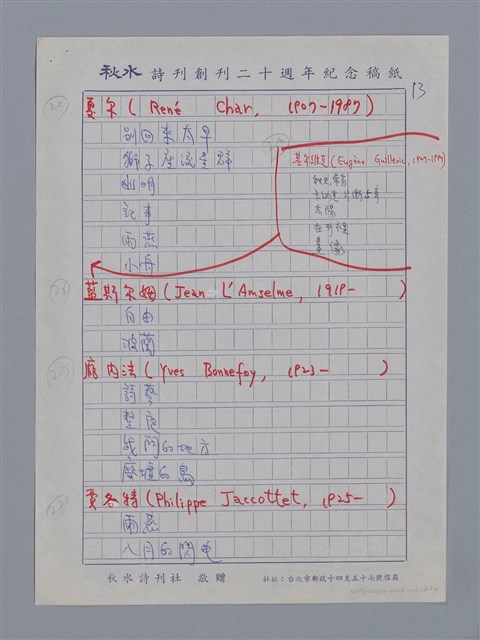 秋水 詩刊創刊二十週年紀念稿紙
13
夏尔 ( René Char, 1907-1987 )
別回來太早
獅子座流星群
記事
雨燕
小舟
基尔維克 (Eugène Guillevic, 1907-1997)
太陽
畫像
藍斯尔姆 (Jean L'Anselme, 1919- )
自由
波蘭
龐內法 ( Yves Bonnefoy, 1923- )
詩藝
整夜
戰鬥的地方
廢墟的鳥
賈各特 (Philippe Jaccottet, 1925- )
雨燕
八月的閃電
秋水詩刊社 敬贈
社址：台北市郵政十四支五十七號信箱